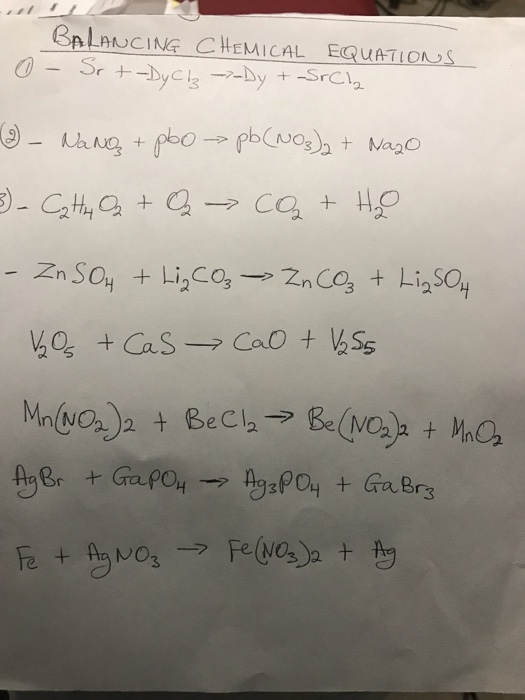 BALANCING CHEMICAL EQUATIONS
① - Sr + -DyCl₃ → -Dy + -SrCl₂
② - NaNO₃ + pbO → pb(NO₃)₂ + Na₂O
3) - C₂H₄O₂ + O₂ → CO₂ + H₂O
- ZnSO₄ + Li₂CO₃ → ZnCO₃ + Li₂SO₄
V₂O₅ + CaS → CaO + V₂S₅
Mn(NO₂)₂ + BeCl₂ → Be(NO₂)₂ + MnCl₂
AgBr + GaPO₄ → Ag₃PO₄ + GaBr₃
Fe + AgNO₃ → Fe(NO₃)₂ + Ag